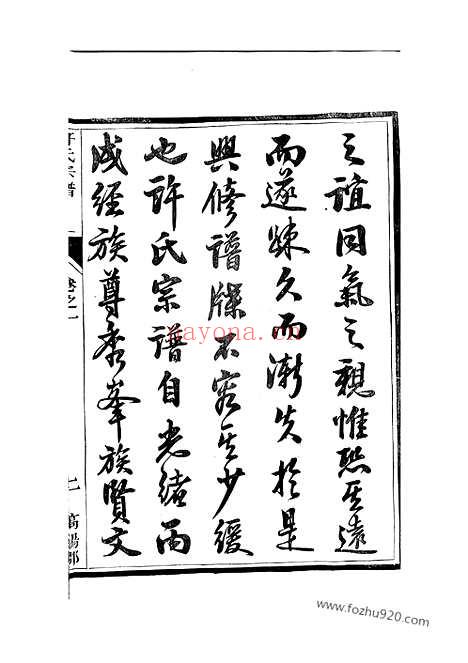 之誼同氣之親惟恐其遠
而遂疎久而漸失於是
興修譜牒不容其少緩
也許氏宗譜自光緒丙
戌經族尊秀峯族賢文
許氏宗譜
卷之一
七
高陽郡
nayona.cn
www.fozhu920.com